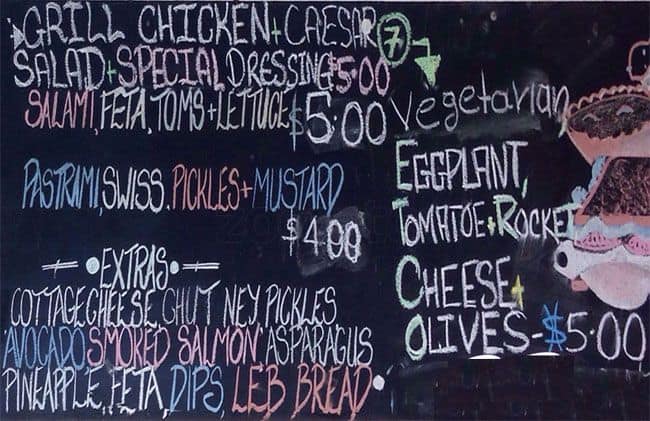 GRILL CHICKEN + CAESAR
SALAD + SPECIAL DRESSING $5.00
SALAMI, FETA, TOMS + LETTUCE $5.00
PASTRAMI, SWISS. PICKLES + MUSTARD
$4.00
EXTRAS
COTTAGE CHEESE CHUT NEY PICKLES
AVOCADO SMOKED SALMON ASPARAGUS
PINEAPPLE, FETA, DIPS, LEB BREAD
7
Vegetarian
EGGPLANT,
TOMATOE + ROCKET
CHEESE +
OLIVES - $5.00